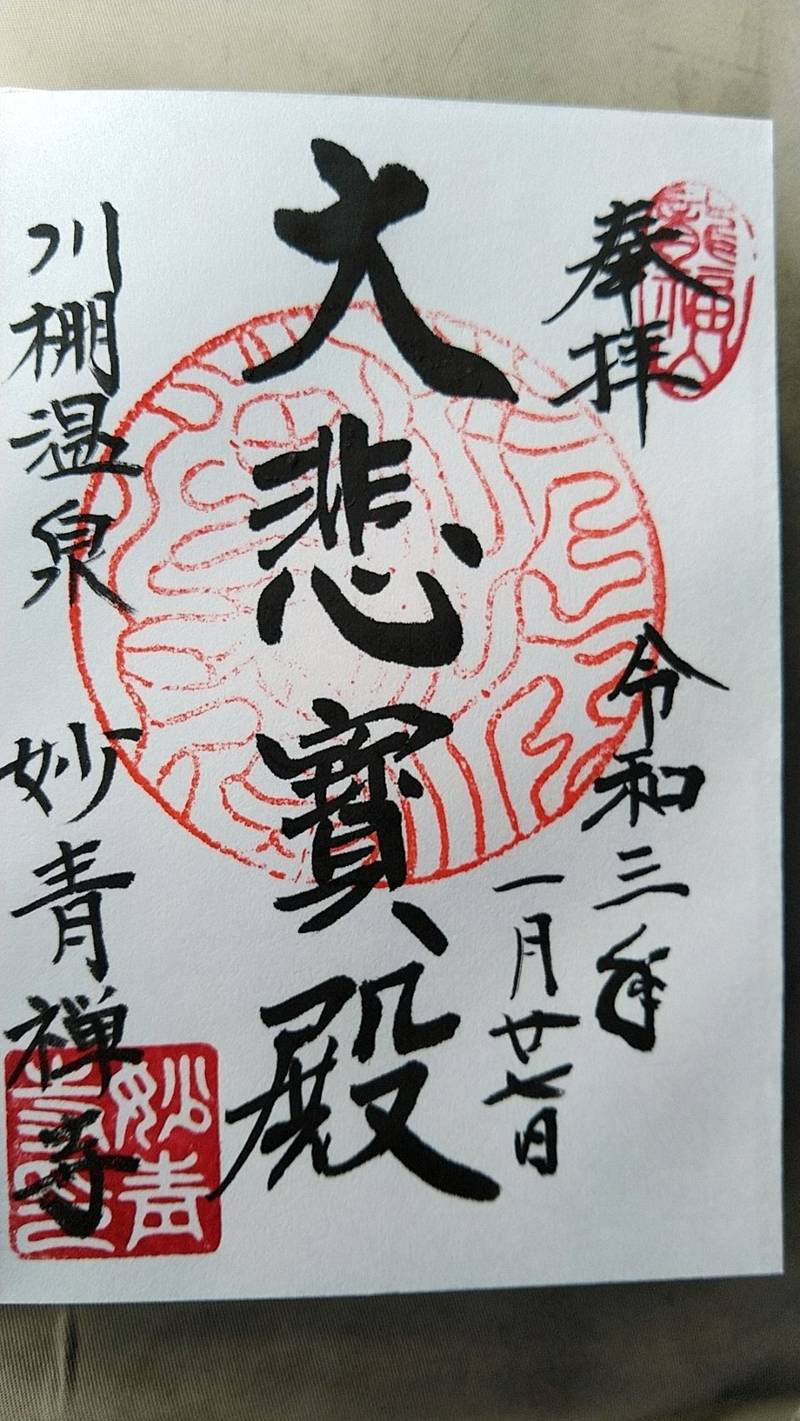 奉拝
令和三年
一月廿七日
大悲寶殿
川棚温泉 妙青禅寺
妙青